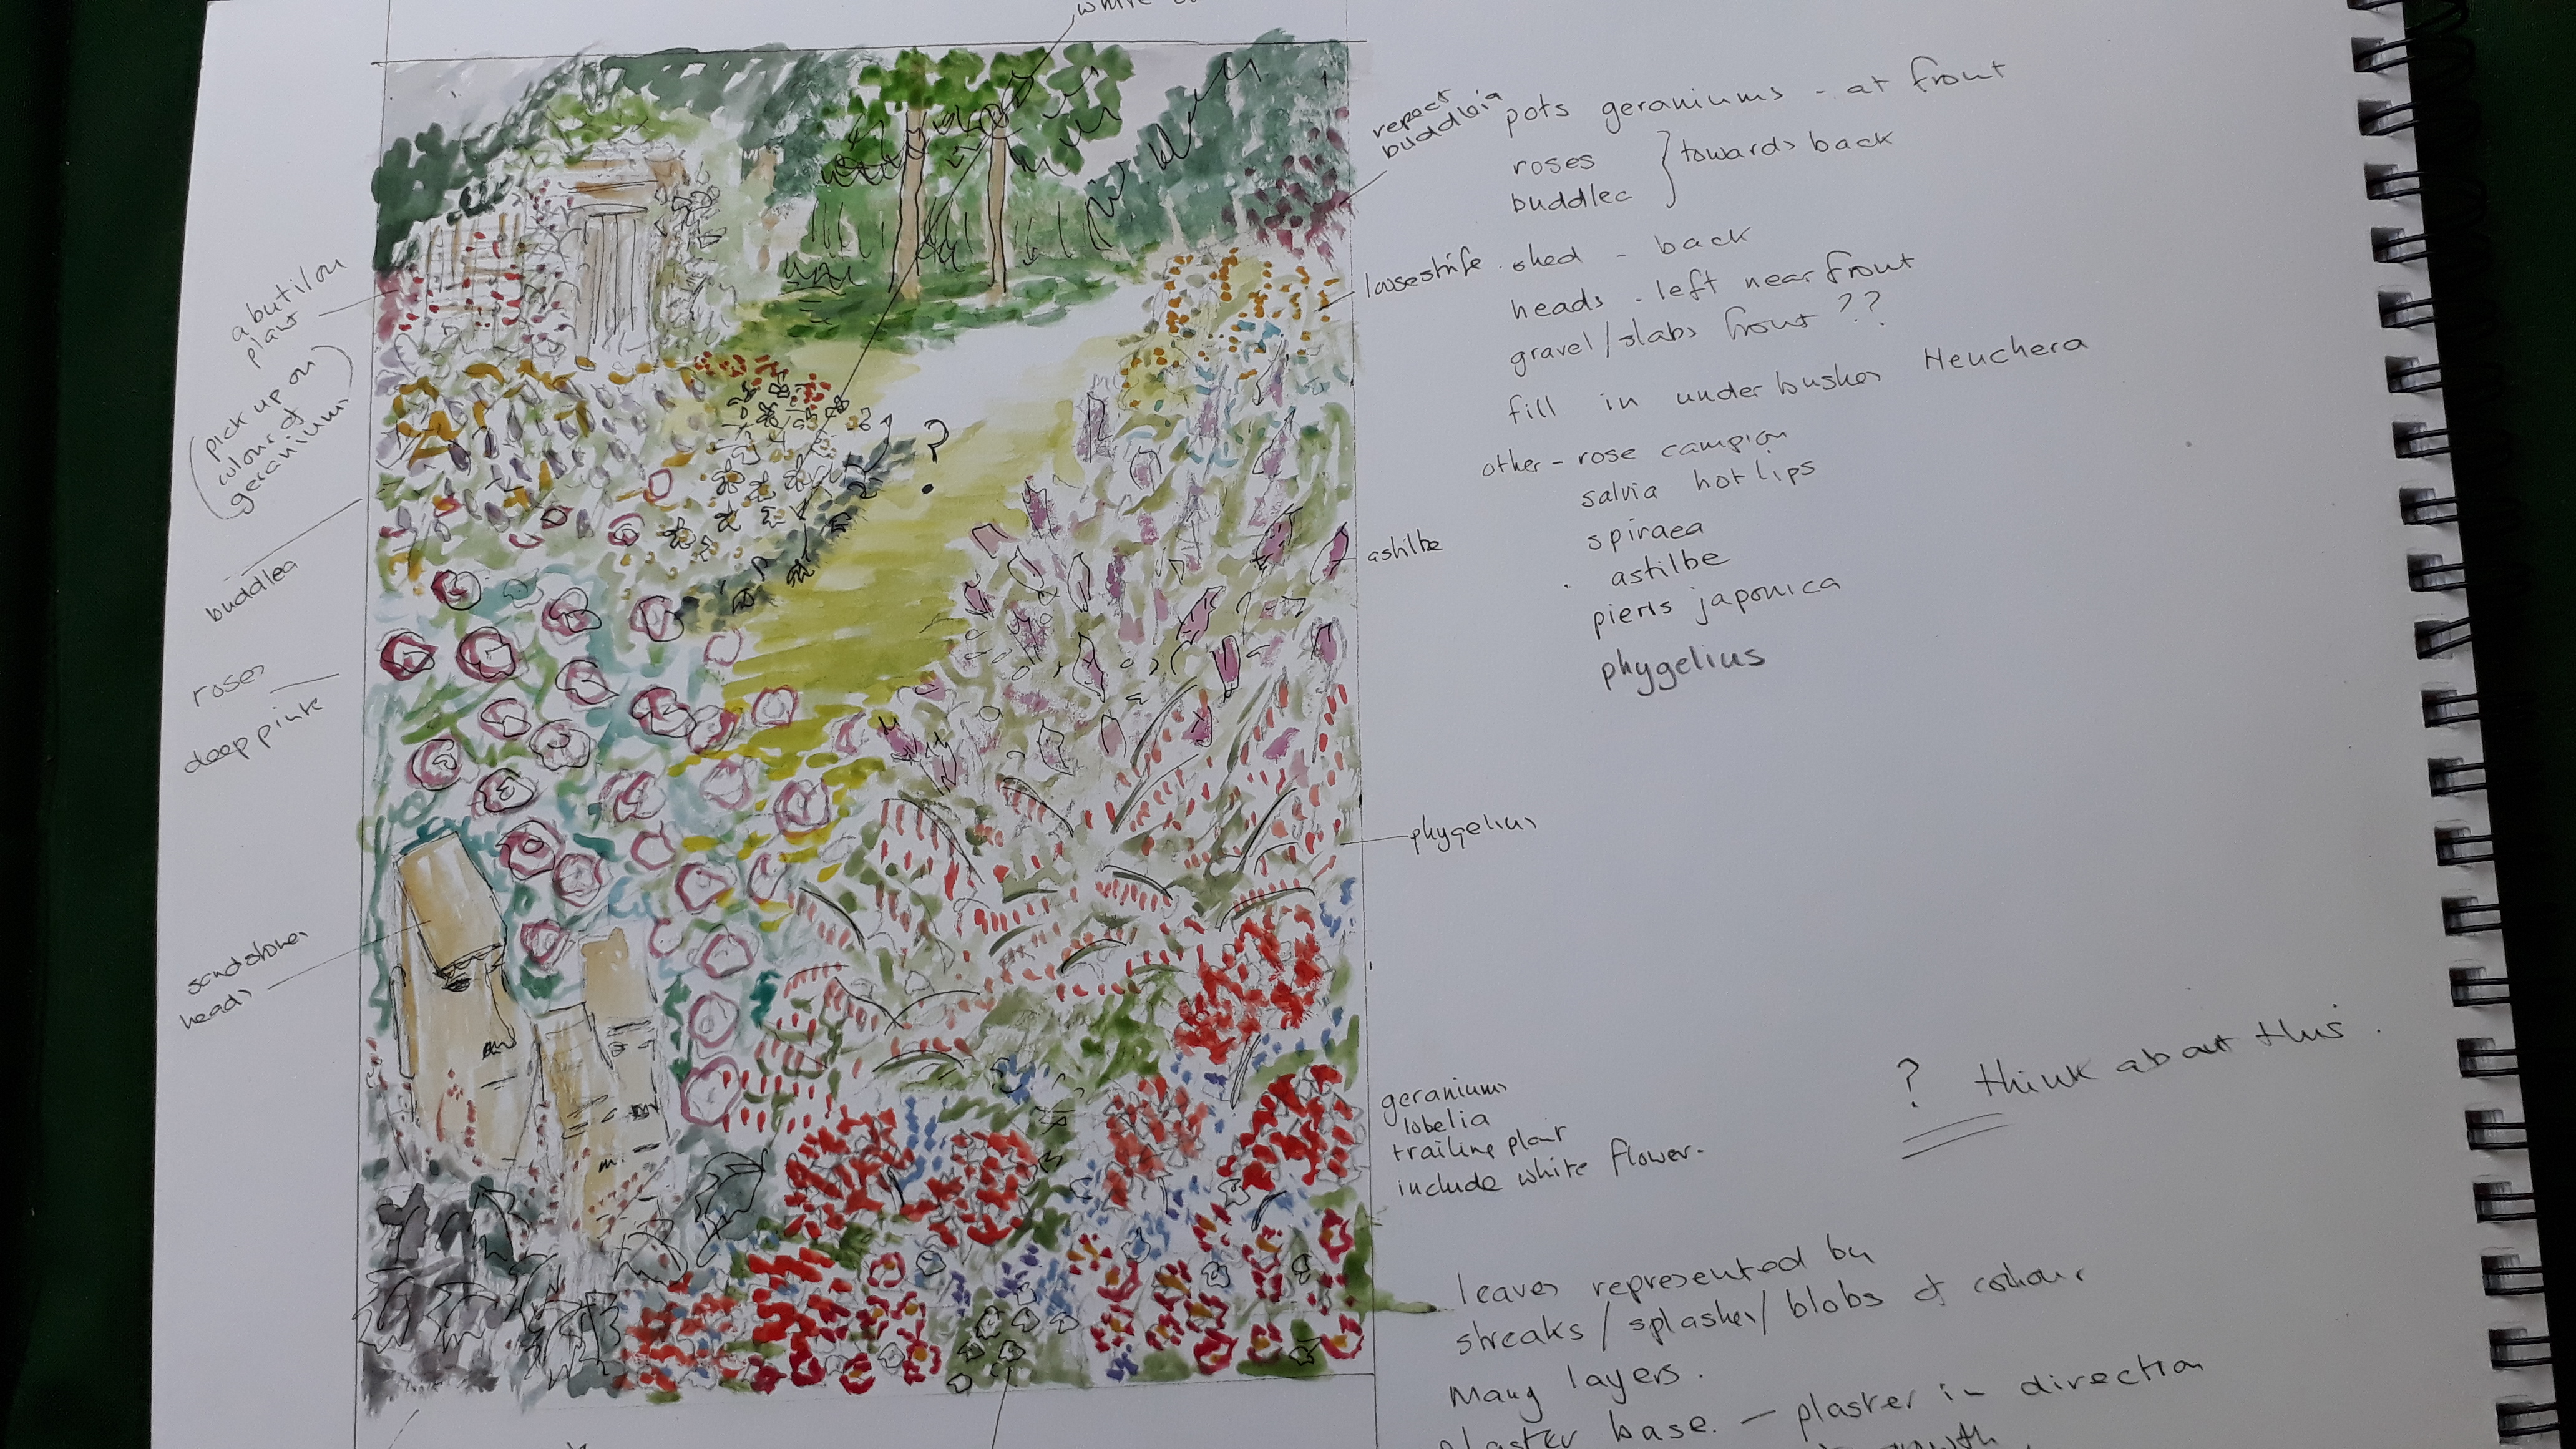 white
abutilon
plant
(pick up on
colour of
geraniums)
buddlea
roses
deep pink
sandstone
heads
?
repeat
buddleia
loosestrife
astilbe
phygelius
geraniums
lobelia
trailing plant
include white flower.
pots geraniums - at front
roses
buddlea } towards back
shed - back
heads - left near front
gravel/slabs front ??
fill in under bushes Heuchera
other - rose campion
salvia hot lips
spiraea
astilbe
pieris japonica
phygelius
? think about this.
leaves represented by
streaks / splashes / blobs of colour
Many layers.
plaster base. - plaster in direction
growth